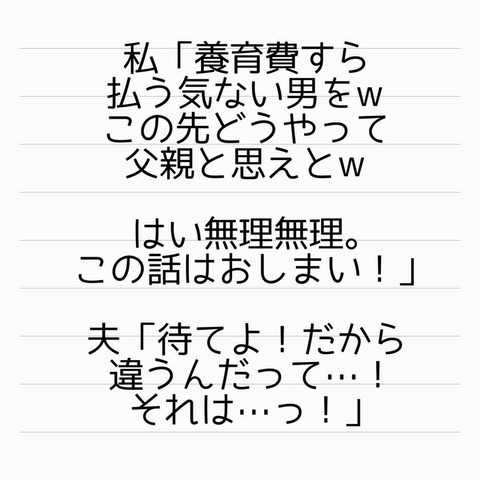 私「養育費すら
払う気ない男をw
この先どうやって
父親と思えとw
はい無理無理。
この話はおしまい！」
夫「待てよ！だから
違うんだって…！
それは…っ！」